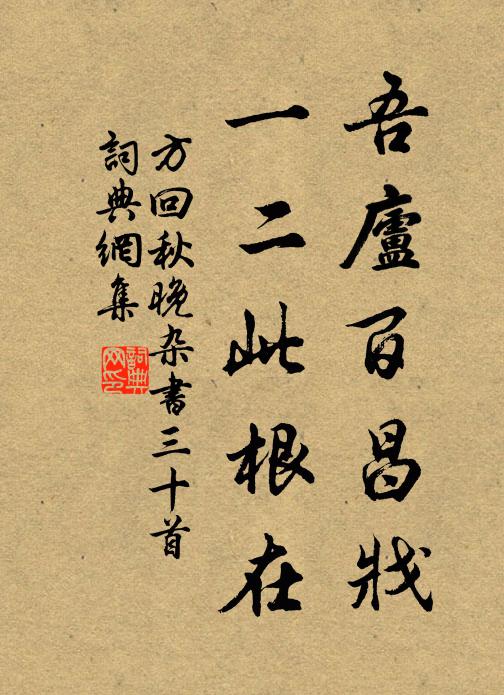 吾廬百昌戕
一二此根在
方回秋晚杂書三十首
詞典網集
詞典网印